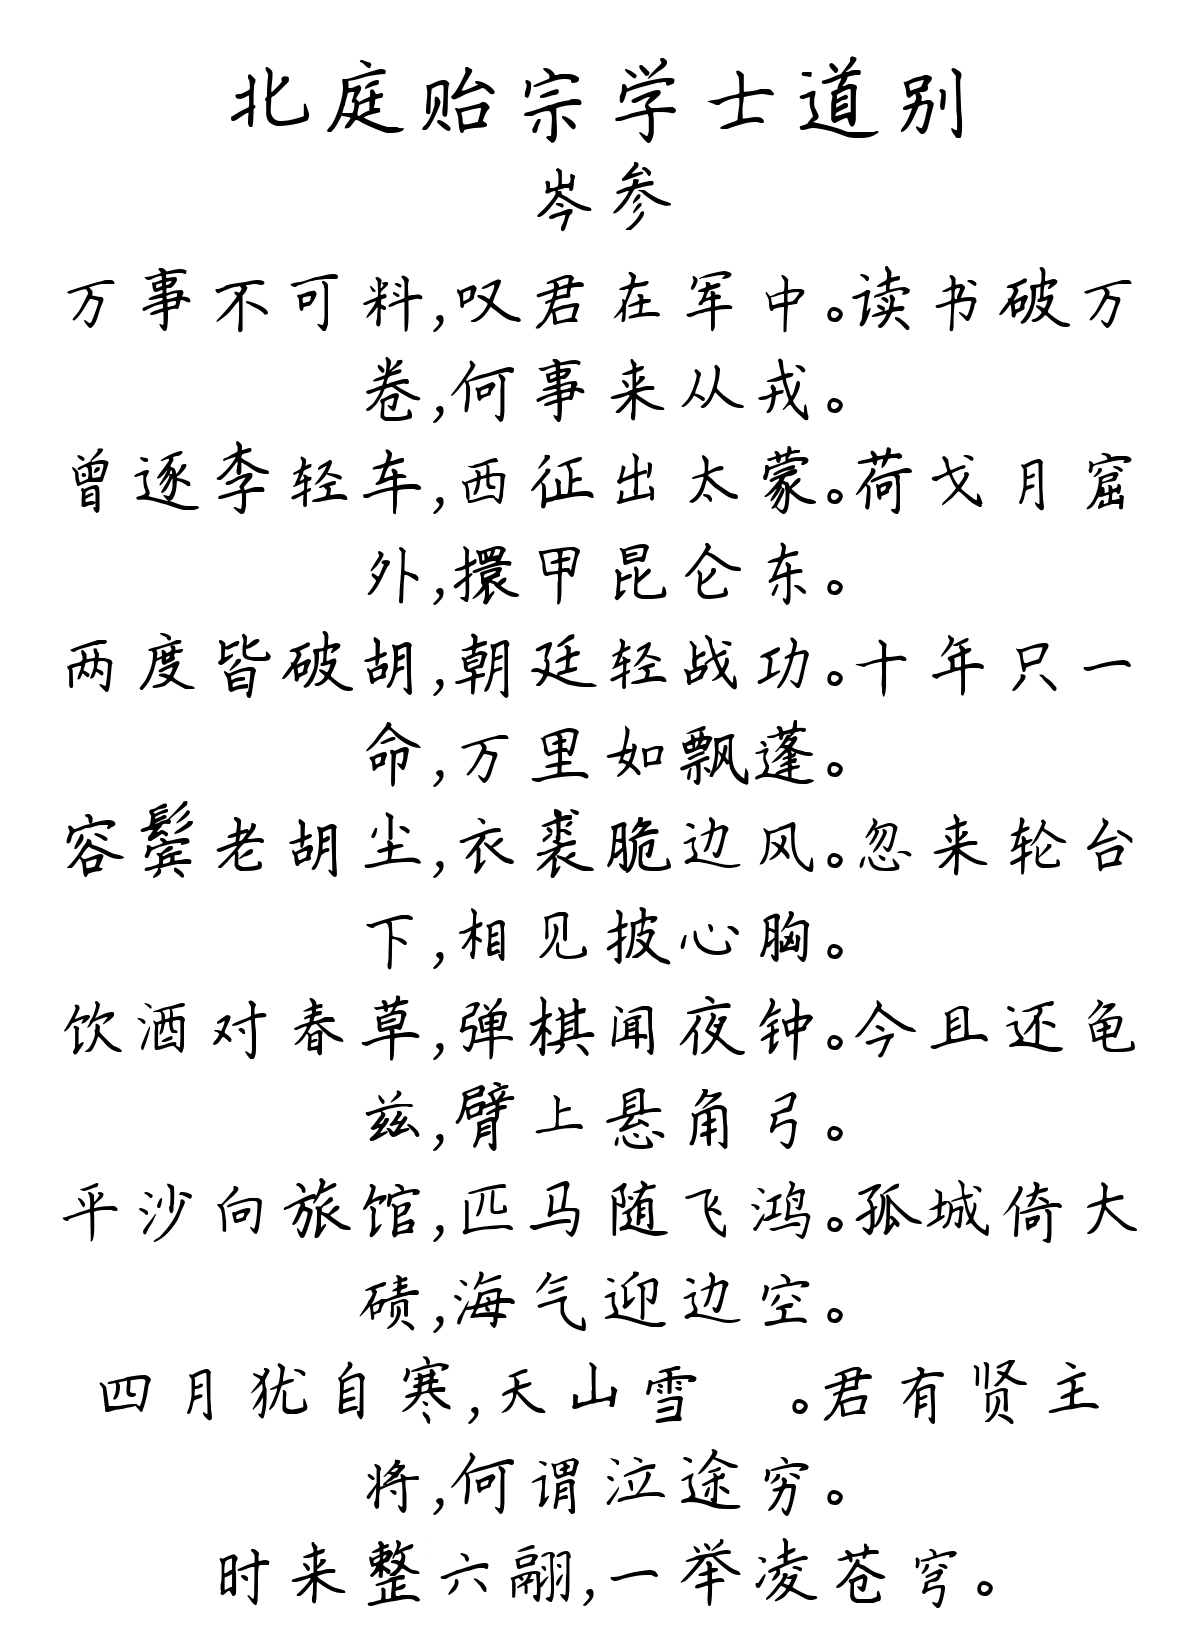 北庭贻宗学士道别
岑参
万事不可料,叹君在军中。读书破万
卷,何事来从戎。
曾逐李轻车,西征出太蒙。荷戈月窟
外,擐甲昆仑东。
两度皆破胡,朝廷轻战功。十年只一
命,万里如飘蓬。
容鬓老胡尘,衣裘脆边风。忽来轮台
下,相见披心胸。
饮酒对春草,弹棋闻夜钟。今且还龟
兹,臂上悬角弓。
平沙向旅馆,匹马随飞鸿。孤城倚大
碛,海气迎边空。
四月犹自寒,天山雪 。君有贤主
将,何谓泣途穷。
时来整六翮,一举凌苍穹。